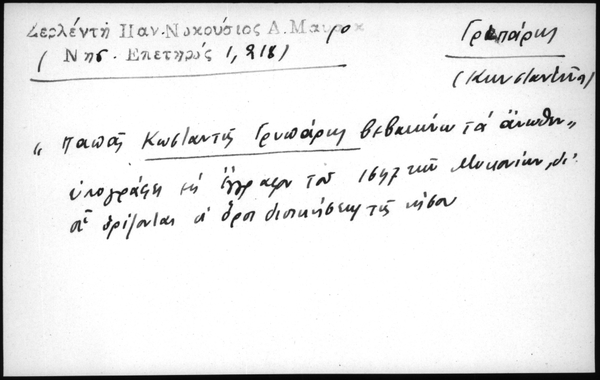 Ζερλέντη Παν. Νικούσιος Α. Μαυρο
(Νησ. Επετηρίς 1, 218)
Γρυπάρης
(Κωνσταντίνος)
„ παπᾶς Κωσταντῆς Γρυπάρης βεβαιώνω τὰ ἄνωθεν „
ὑπογράφει εἰς ἔγγραφον τοῦ 1647 τῶν Μυκονίων, δι'
οὗ ὁρίζονται οἱ ὅροι διοικήσεως τῆς νήσου